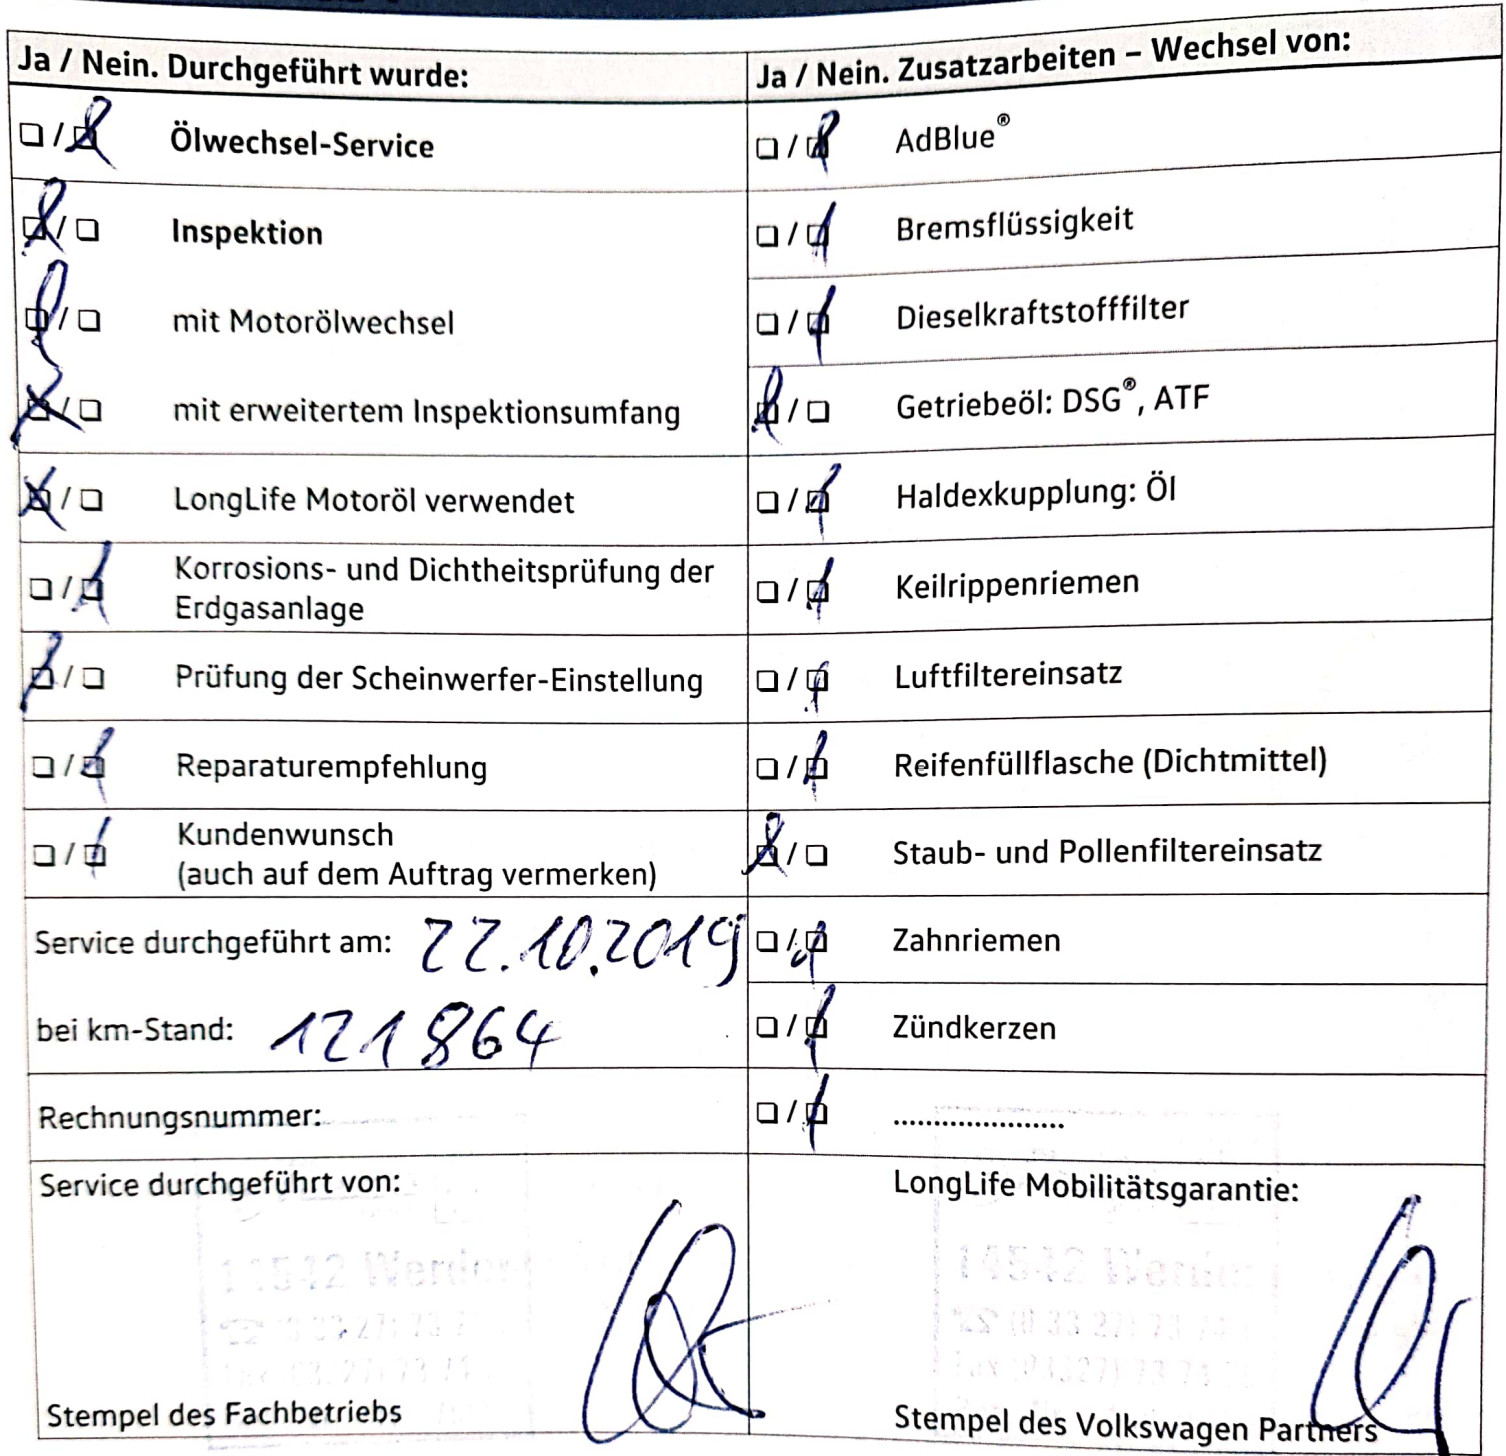 Ja / Nein. Durchgeführt wurde:
☐ / ☒ Ölwechsel-Service
☒ / ☐ Inspektion
☒ / ☐ mit Motorölwechsel
☒ / ☐ mit erweitertem Inspektionsumfang
☒ / ☐ LongLife Motoröl verwendet
☐ / ☒ Korrosions- und Dichtheitsprüfung der
Erdgasanlage
☒ / ☐ Prüfung der Scheinwerfer-Einstellung
☐ / ☒ Reparaturempfehlung
☐ / ☒ Kundenwunsch
(auch auf dem Auftrag vermerken)
Service durchgeführt am: 22.10.2019
bei km-Stand: 121864
Rechnungsnummer:
Service durchgeführt von:
14542 Werder
Stempel des Fachbetriebs
Ja / Nein. Zusatzarbeiten – Wechsel von:
☐ / ☒ AdBlue®
☐ / ☒ Bremsflüssigkeit
☐ / ☒ Dieselkraftstofffilter
☒ / ☐ Getriebeöl: DSG®, ATF
☐ / ☒ Haldexkupplung: Öl
☐ / ☒ Keilrippenriemen
☐ / ☒ Luftfiltereinsatz
☐ / ☒ Reifenfüllflasche (Dichtmittel)
☒ / ☐ Staub- und Pollenfiltereinsatz
☐ / ☒ Zahnriemen
☐ / ☒ Zündkerzen
☐ / ☒ .....................
LongLife Mobilitätsgarantie:
14542 Werder
Stempel des Volkswagen Partners